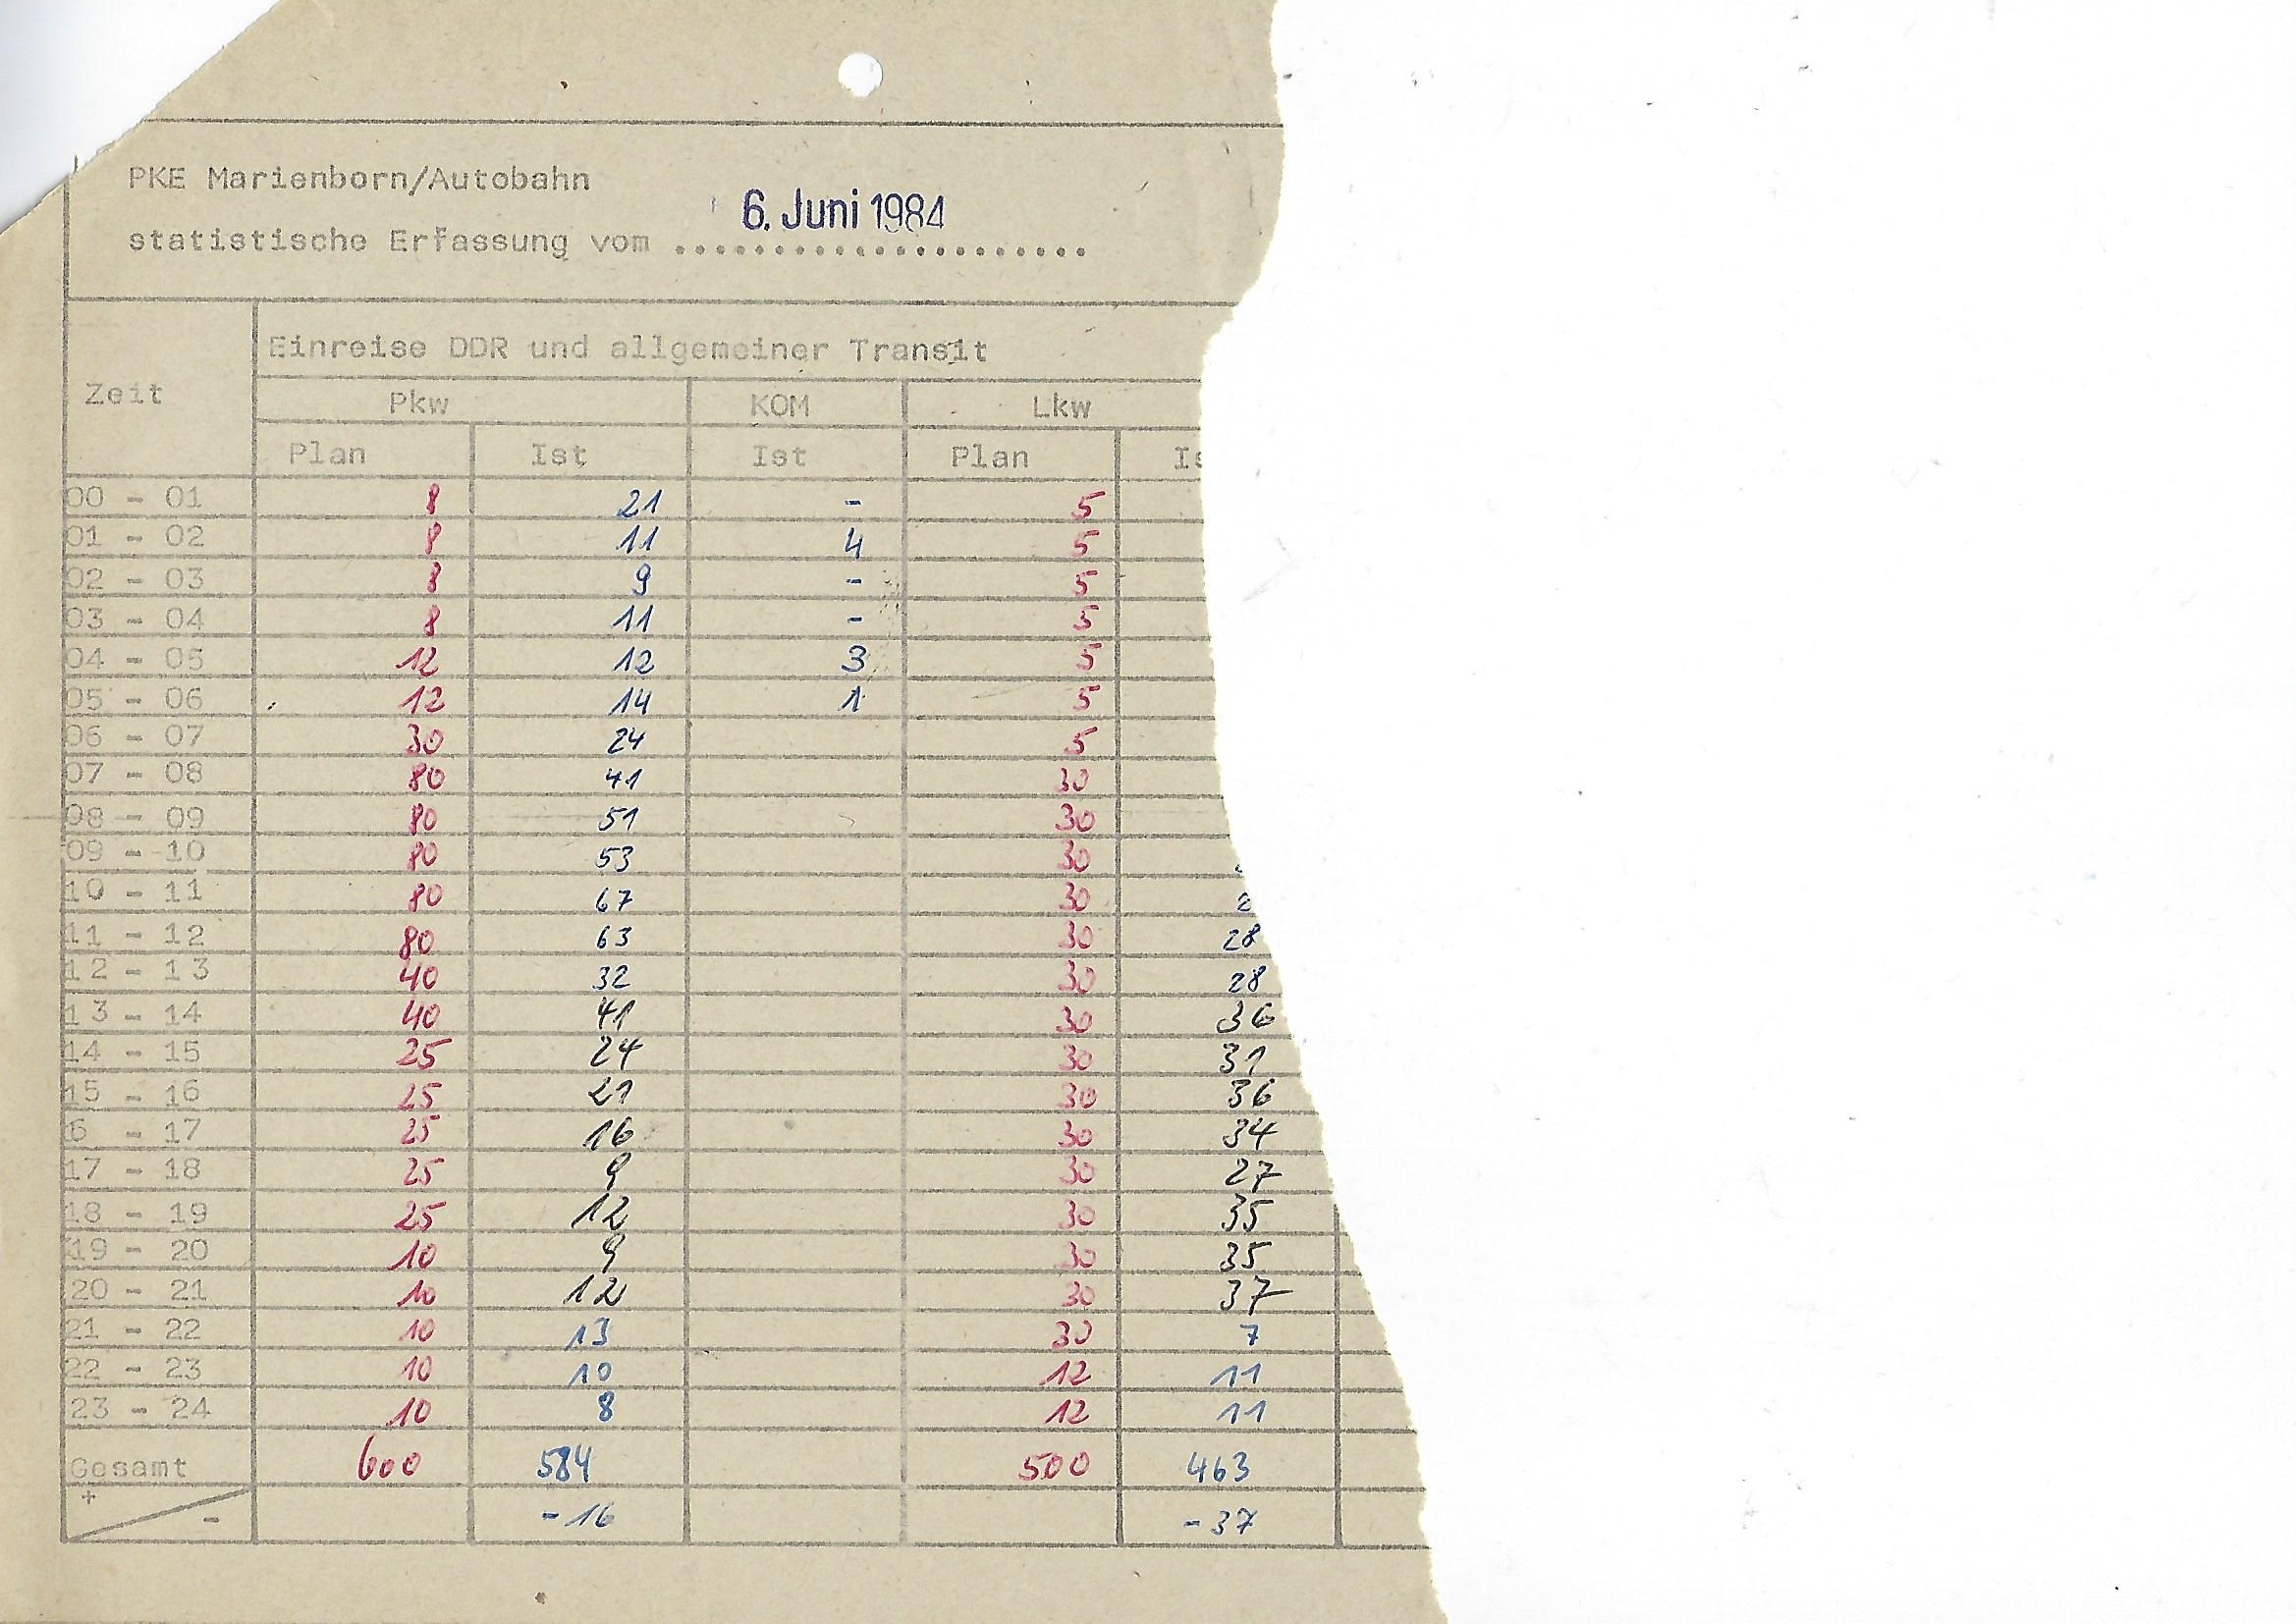 PKE Marienborn/Autobahn
6. Juni 1984
statistische Erfassung vom .....................
Zeit
Einreise DDR und allgemeiner Transit
Pkw KOM Lkw
Plan Ist Ist Plan
00 - 01 8 21 - 5
01 - 02 8 11 4 5
02 - 03 8 9 - 5
03 - 04 8 11 - 5
04 - 05 12 12 3 5
05 - 06 12 14 1 5
06 - 07 30 24 5
07 - 08 80 41 30
08 - 09 80 51 30
09 - 10 80 53 30
10 - 11 80 67 30
11 - 12 80 63 30 28
12 - 13 40 32 30 28
13 - 14 40 41 30 36
14 - 15 25 24 30 31
15 - 16 25 21 30 36
6 - 17 25 16 30 34
17 - 18 25 9 30 27
18 - 19 25 12 30 35
19 - 20 10 9 30 35
20 - 21 10 12 30 37
21 - 22 10 13 30 7
22 - 23 10 10 12 11
23 - 24 10 8 12 11
Gesamt 600 584 500 463
+ - -16 -37